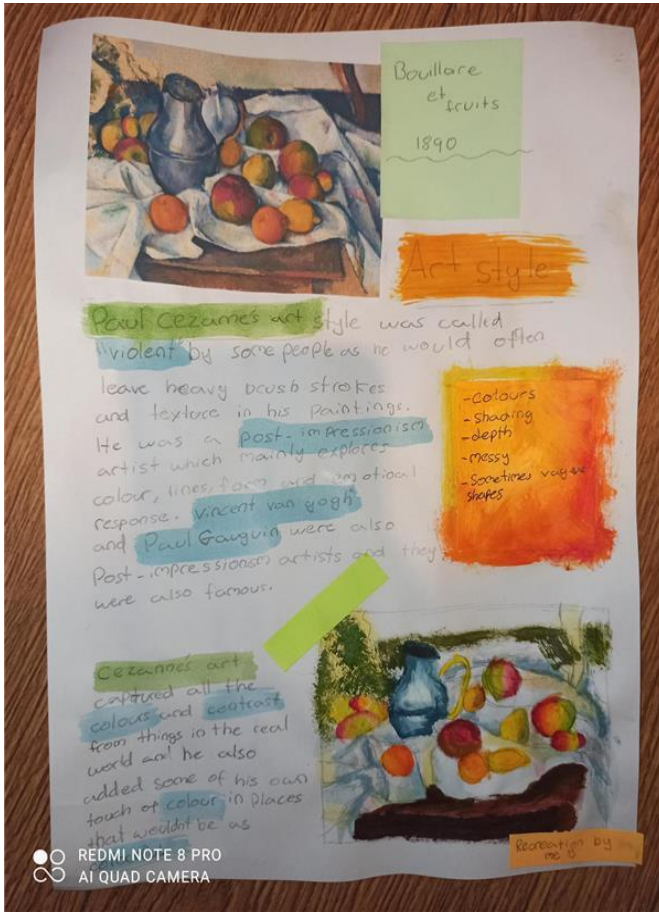 Bouillaire
et
fruits
1890
Art style
Paul Cezanne's art style was called
"violent" by some people as he would often
leave heavy brush strokes
and texture in his paintings.
He was a post-impressionism
artist which mainly explores
colour, lines, form and emotional
response. Vincent van gogh
and Paul Gauguin were also
Post-impressionism artists and they
were also famous.
-Colours
-Shading
-depth
-messy
-Sometimes vague
shapes
Cezanne's art
captured all the
colours and contrast
from things in the real
world and he also
added some of his own
touch of colour in places
that wouldn't be as
Recreation by
me
REDMI NOTE 8 PRO
AI QUAD CAMERA